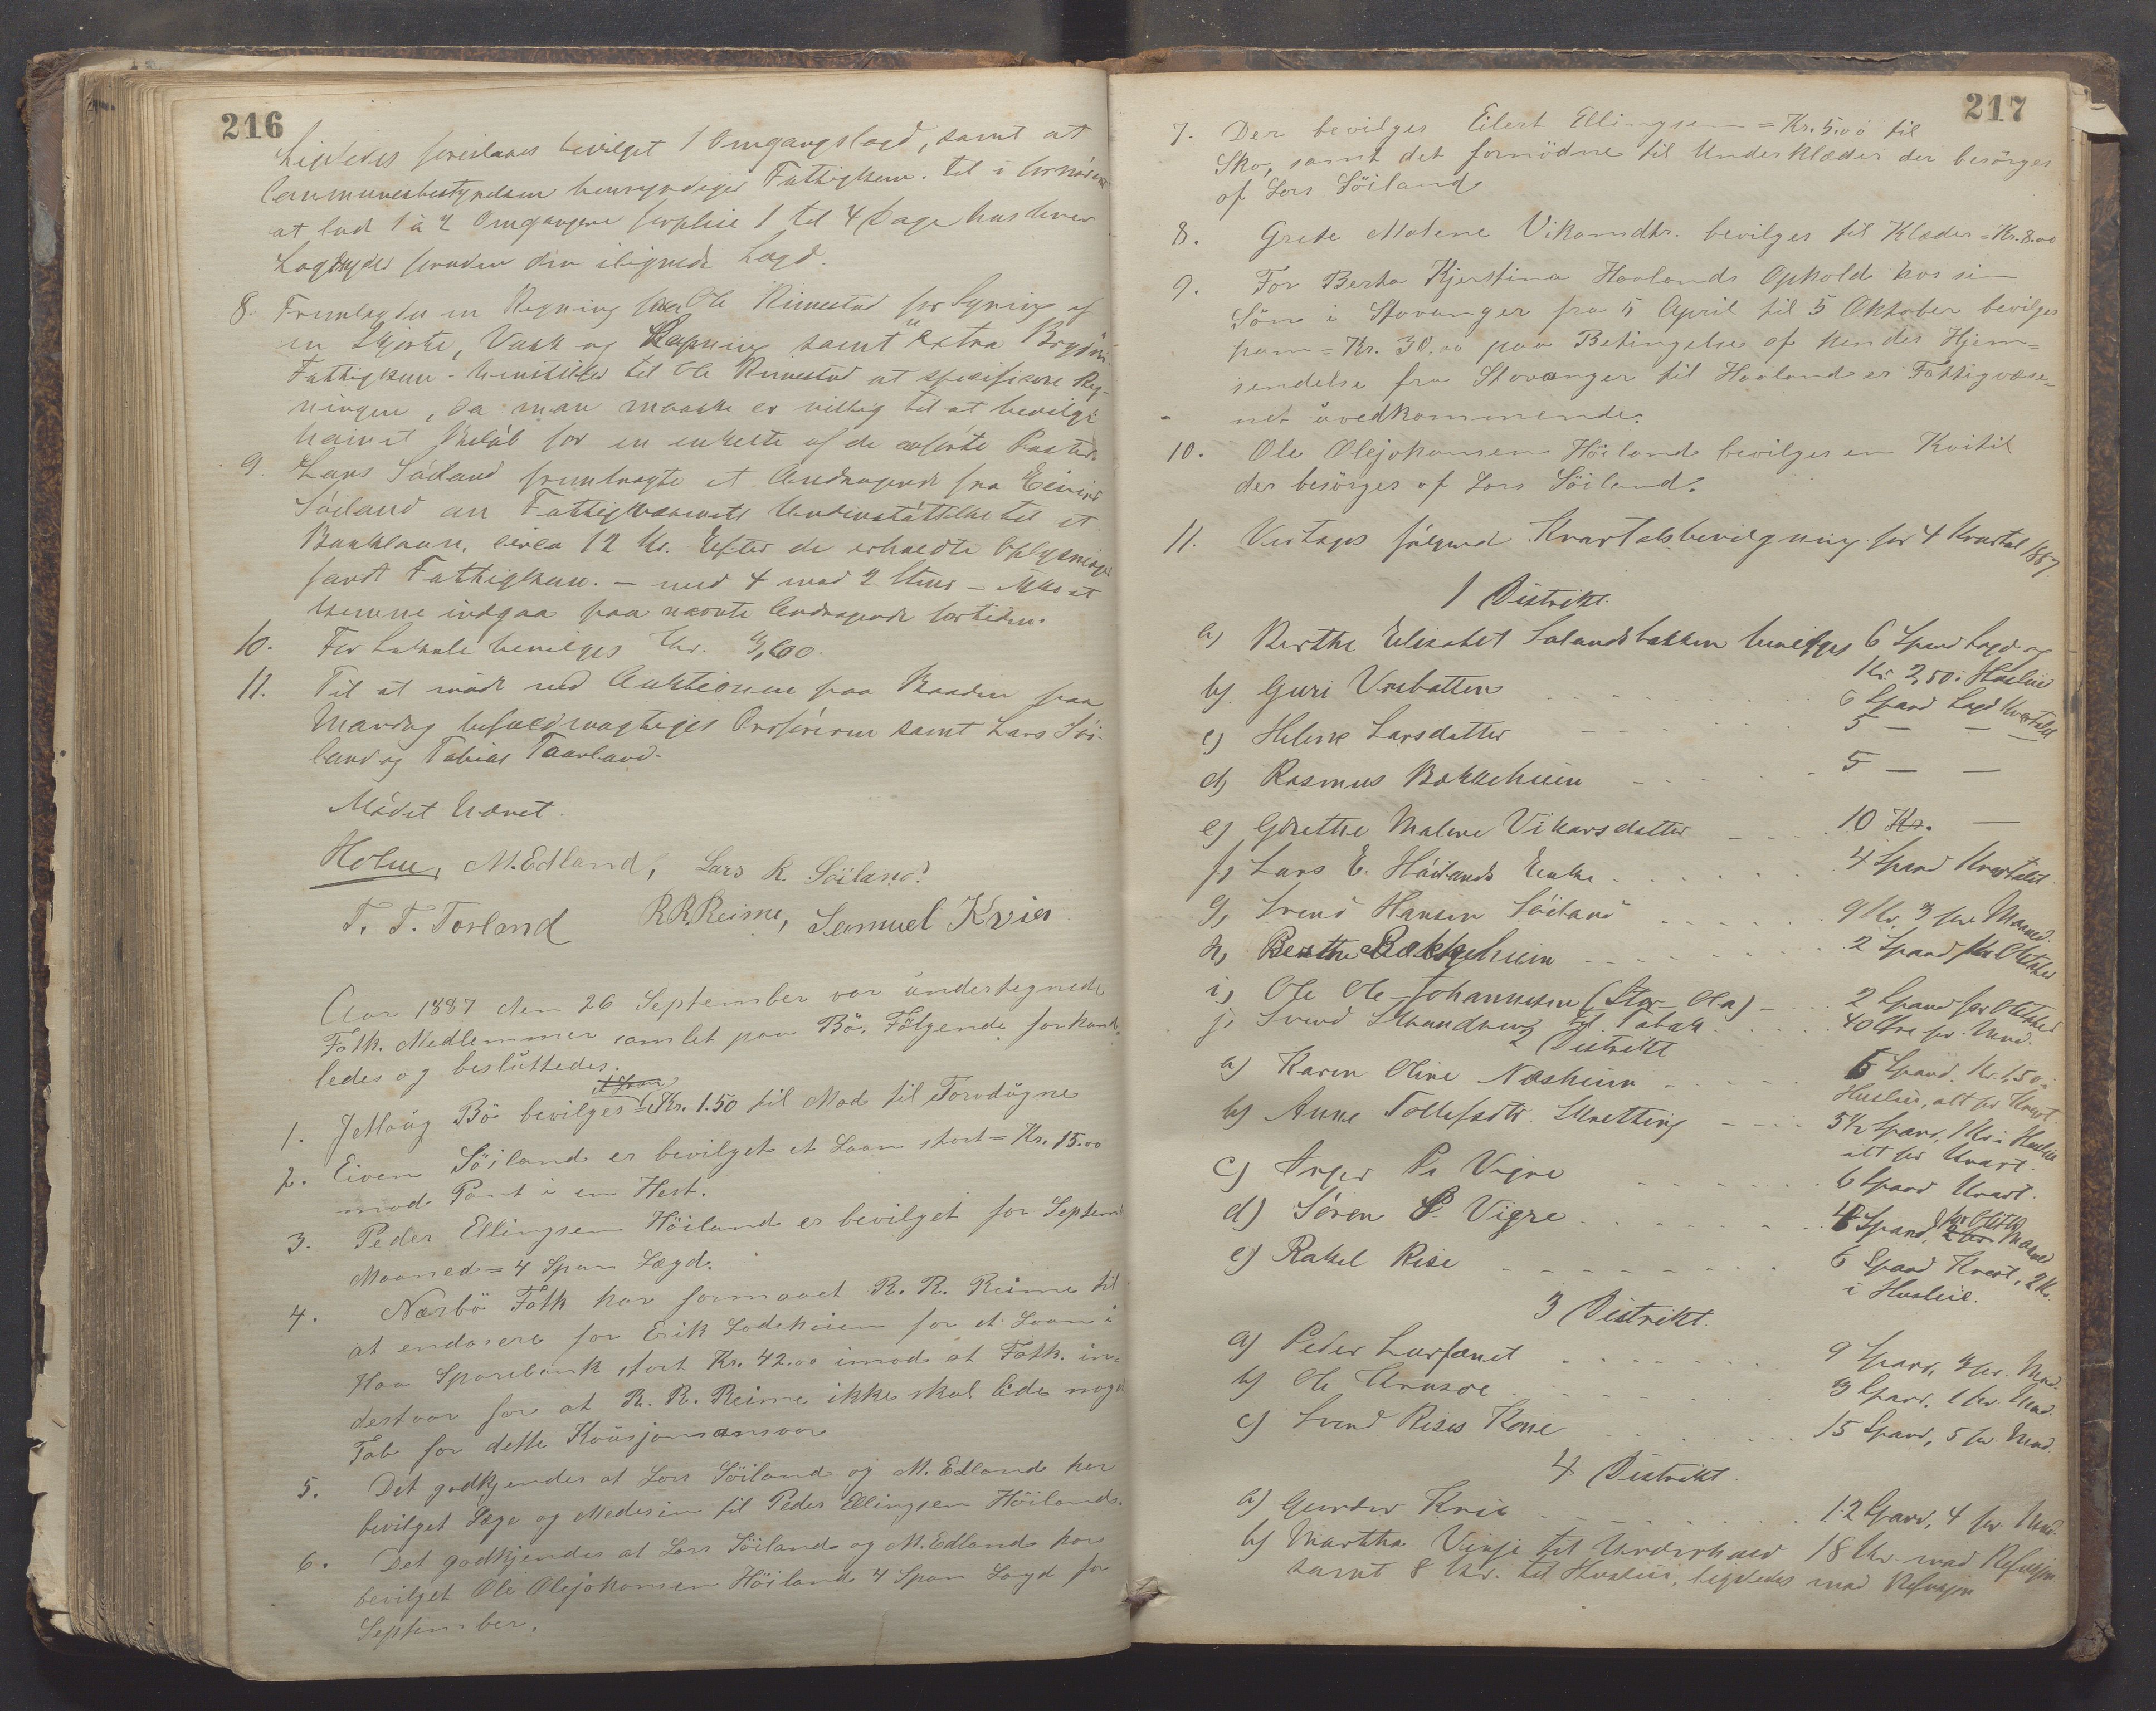 216
Ligeledes foreslaaes bevilget 1 Omgangslægd, samt at
Communebestyrelsen bemyndiger Fattigkom. til i
at lade 1 à 2 Omgangere forpleie 1 til 4 Dage hos hver
Lægdsyder foruden den ilignede Lægd.
8. Fremlagdes en Regning fra Ole Rimestad for Syning af
en Skjorte, Vask og Lapning samt extra
Fattigkom. henstilles til Ole Rimestad at spesifisere Reg-
ningen, da man maaske er villig til at bevilge
Beløb for en enkelte af de anførte Poster
9. Lars Söiland fremlagte et Andragende fra Eivind
Söiland om Fattigvæsenets Understøttelse til et
Banklaan, circa 12 Kr. Efter de erholdte Oplysninger
fandt Fattigkom. – med 4 mod 2 Stem – ikke at
kunne indgaa paa nævnte Andragende fortiden.
10. For Lokale bevilges Kr. 1,60.
11. Til at møde ved Auktionen paa Baaden paa
Mandag befuldmægtiges Ordføreren samt Lars Söi-
land og Tobias Taarland.
Mödet hævet.
Holm, M. Edland, Lars R. Söiland
T. T. Torland R R Reime, Samuel Kvia
Aar 1887 den 26 September var undertegnede
Fatk. Medlemmer samlet paa Bö. Fölgende forhand-
ledes og besluttedes.
1. Jetlaug Bö bevilges Kr. 1.50 til Mad til Tarvdügne
2. Eiven Söiland er bevilget et Laan stort = Kr. 15.00
mod Pant i en Hest.
3. Peder Ellingsen Höiland er bevilget for Septem
Maaned = 4 Span Lægd.
4. Nærbö Fatk har formaaet R. R. Reime til
at endosere for Erik Lodeheien for et Laan i
Haa Sparebank stort Kr. 42.00 imod at Fatk. in-
destaar for at R. R. Reime ikke skal lide noget
Tab for dette Kausjonsansvar
5. Det godkjendes at Lars Söiland og M. Edland har
bevilget Læge og Medesin til Peder Ellingsen Höiland.
6. Det godkjendes at Lars Söiland og M. Edland har
bevilget Ole Olejohansen Höiland 4 Span Lægd for
September.
217
7. Der bevilges Eilert Ellingsen = Kr. 5.00 til
Sko, samt det fornödne til Underklæder der besörges
af Lars Söiland
8. Grete Malene Vikansdtr. bevilges til Klæder = Kr. 8.00
9. For Berta Kjerstina Haalands Ophold hos sin
Sön i Stavanger fra 5 April til 5 Oktober bevilges
ham = Kr. 30.00 paa Betingelse af hendes Hjem-
sendelse fra Stavanger til Haaland er Fattigvæse-
net üvedkommende.
10. Ole Olejohansen Höiland bevilges en Kvitil
der besörges af Lars Söiland.
11. Vertages følgende Kvartalsbevilgning for 4 Kvartal 1887.
1 Distrikt.
a) Berthe Elisabet Salandsbakken bevilges 6 Spand Lægd og
Kr. 2,50 i Husleie
b) Guri Vrabatten 6 Spand Lægd Kvartalet
c) Helene Larsdatter 5 — — —
d) Rasmus Bakkeheien 5 — —
e) Grethe Malene Vikarsdatter 10 Kr. —
f) Lars E. Höilands Enke 4 Spand Kvartalet
g) Svend Hansen Söiland 9 Kr. 3 per Maaned.
h) Berthe Bakkeheien 2 Spand for Oktober
i) Ole Ole-Johannesen (Stor-Ola) 2 Spand for Oktober
j) Svend Strandberg til Tobak 40 Øre pr. Mnd.
2 Distrikt
a) Karen Oline Næsheim 5 Spand. Kr. 1,50 i
Husleie, alt pr Kvart.
b) Anne Tollefsdtr. Skretting 5½ Spand, 1 Kr i Husleie
alt pr Kvart.
c) Inger Pr Vigre 6 Spand Kvart.
d) Søren P. Vigre 4 Spand, for Oktbr Maaned
e) Rakel Rise 6 Spand Kvart, 2 Kr.
i Husleie.
3 Distrikt.
a) Peder Lurfanet 9 Spand, 3 pr. Mnd.
b) Ole Urusøe 3 Spand, 1 pr. Mnd.
c) Svend Rises Kone 15 Spand, 5 pr Mnd.
4 Distrikt.
a) Gunder Kvia 12 Spand, 4 pr Mnd.
b) Martha Vinje til Underhold 18 Kr. mod Refusjon
samt 8 Kr. til Husleie, ligeledes mod Refusjon